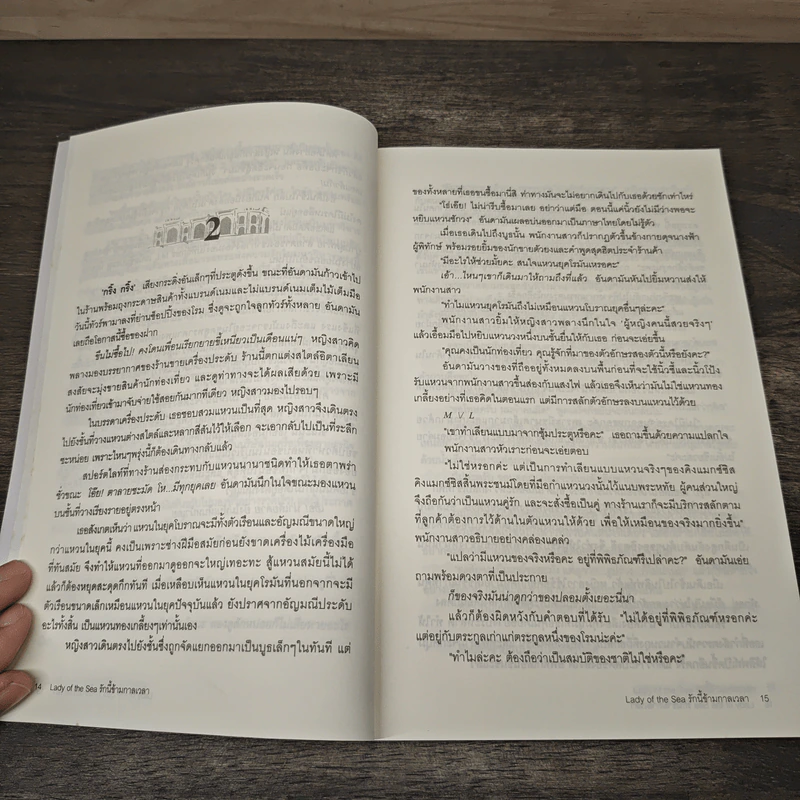 2
'กริ๊ง กริ๊ง' เสียงกระดิ่งอันเล็กๆที่ประตูดังขึ้น ขณะที่อันดามันก้าวเข้าไป
ในร้านพร้อมถุงกระดาษสินค้าทั้งแบรนด์เนมและไม่แบรนด์เนมเต็มไม้เต็มมือ
วันนี้ทัวร์พามาลงที่ย่านช็อปปิ้งของโรม ซึ่งดูจะถูกใจลูกทัวร์ทั้งหลาย อันดามัน
เลยถือโอกาสนี้ซื้อของฝาก
ขืนไม่ซื้อไป! คงโดนเพื่อนเรียกยายขี้เหนียวเป็นเดือนแน่ๆ หญิงสาวคิด
พลางมองบรรยากาศของร้านขายเครื่องประดับ ร้านนี้ตกแต่งสไตล์อิตาเลียน
สงสัยจะมุ่งขายสินค้านักท่องเที่ยว และดูท่าทางจะได้ผลเสียด้วย เพราะมี
นักท่องเที่ยวเข้ามาจับจ่ายใช้สอยกันมากทีเดียว หญิงสาวมองไปรอบๆ
ในบรรดาเครื่องประดับ เธอชอบสวมแหวนเป็นที่สุด หญิงสาวจึงเดินตรง
ไปยังชั้นที่วางแหวนต่างสไตล์และหลากสีสันไว้ให้เลือก จะเอากลับไปเป็นที่ระลึก
ซะหน่อย เพราะไหนๆพรุ่งนี้ก็ต้องเดินทางกลับแล้ว
สปอร์ตไลท์ที่ทางร้านส่องกระทบกับแหวนนานาชนิดทำให้เธอตาพร่า
ชั่วขณะ โอ๊ย! ตาลายชะมัด โห...มีทุกยุคเลย อันดามันนึกในใจขณะมองแหวน
บนชั้นที่วางเรียงรายอยู่ตรงหน้า
เธอสังเกตเห็นว่า แหวนในยุคโบราณจะมีทั้งตัวเรือนและอัญมณีขนาดใหญ่
กว่าแหวนในยุคนี้ คงเป็นเพราะช่างฝีมือสมัยก่อนยังขาดเครื่องไม้เครื่องมือ
ที่ทันสมัย จึงทำให้แหวนที่ออกมาดูออกจะใหญ่เทอะทะ สู้แหวนสมัยนี้ไม่ได้
แล้วก็ต้องหยุดสะดุดกึกทันที เมื่อเหลือบเห็นแหวนในยุคโรมันที่นอกจากจะมี
ตัวเรือนขนาดเล็กเหมือนแหวนในยุคปัจจุบันแล้ว ยังปราศจากอัญมณีประดับ
อะไรทั้งสิ้น เป็นแหวนทองเกลี้ยงๆเท่านั้นเอง
หญิงสาวเดินตรงไปยังชั้นซึ่งถูกจัดแยกออกมาเป็นบูธเล็กๆในทันที แต่
14 Lady of the Sea รักนี้ข้ามกาลเวลา
ของทั้งหลายที่เธอขนซื้อมานี่สิ ทำทางมันจะไม่อยากเดินไปกับเธอด้วยซักเท่าไหร่
"โธ่เอ๊ย! ไม่น่ารีบซื้อมาเลย อย่าว่าแต่มือ ตอนนี้แค่นิ้วยังไม่มีว่างพอจะ
หยิบแหวนซักวง" อันดามันเผลอบ่นออกมาเป็นภาษาไทยโดยไม่รู้ตัว
เมื่อเธอเดินไปถึงบูธนั้น พนักงานสาวก็ปรากฏตัวขึ้นข้างกายดุจนางฟ้า
ผู้พิทักษ์ พร้อมรอยยิ้มของนักขายตัวยงและคำพูดสุดฮิตประจำร้านค้า
"มีอะไรให้ช่วยมั้ยคะ สนใจแหวนยุคโรมันเหรอคะ"
เอ้า...ไหนๆเขาก็เดินมาให้ถามถึงที่แล้ว อันดามันหันไปยิ้มหวานส่งให้
พนักงานสาว
"ทำไมแหวนยุคโรมันถึงไม่เหมือนแหวนโบราณยุคอื่นๆล่ะคะ"
พนักงานสาวยิ้มให้หญิงสาวพลางนึกในใจ 'ผู้หญิงคนนี้สวยจริงๆ'
แล้วเอื้อมมือไปหยิบแหวนวงหนึ่งบนชั้นยื่นให้กับเธอ ก่อนจะเอ่ยขึ้น
"คุณคงเป็นนักท่องเที่ยว คุณรู้จักที่มาของตัวอักษรสองตัวนี้หรือยังคะ?"
อันดามันวางของที่ถืออยู่ทั้งหมดลงบนพื้นก่อนที่จะใช้นิ้วชี้และนิ้วโป้ง
รับแหวนจากพนักงานสาวขึ้นส่องกับแสงไฟ แล้วเธอจึงเห็นว่ามันไม่ใช่แหวนทอง
เกลี้ยงอย่างที่เธอคิดในตอนแรก แต่มีการสลักตัวอักษรลงบนแหวนไว้ด้วย
M V L
"เขาทำเลียนแบบมาจากซุ้มประตูหรือคะ" เธอถามขึ้นด้วยความแปลกใจ
พนักงานสาวหัวเราะก่อนจะเอ่ยตอบ
"ไม่ใช่หรอกค่ะ แต่เป็นการทำเลียนแบบแหวนจริงๆของคิงแมกซ์ซิส
คิงแมกซ์ซิสสิ้นพระชนม์โดยที่มือกำแหวนวงนั้นไว้แนบพระหทัย ผู้คนส่วนใหญ่
จึงถือกันว่าเป็นแหวนคู่รัก และจะสั่งซื้อเป็นคู่ ทางร้านเราก็จะมีบริการสลักตาม
ที่ลูกค้าต้องการไว้ด้านในตัวแหวนให้ด้วย เพื่อให้เหมือนของจริงมากยิ่งขึ้น"
พนักงานสาวอธิบายอย่างคล่องแคล่ว
"แปลว่ามีแหวนของจริงหรือคะ อยู่ที่พิพิธภัณฑ์รึเปล่าคะ?" อันดามันเอ่ย
ถามพร้อมดวงตาที่เป็นประกาย
ก็ของจริงมันน่าดูกว่าของปลอมตั้งเยอะนี่นา
แล้วก็ต้องผิดหวังกับคำตอบที่ได้รับ "ไม่ได้อยู่ที่พิพิธภัณฑ์หรอกค่ะ
แต่อยู่กับตระกูลเก่าแก่ตระกูลหนึ่งของโรมน่ะค่ะ"
"ทำไมล่ะคะ ต้องถือว่าเป็นสมบัติของชาติไม่ใช่หรือคะ"
Lady of the Sea รักนี้ข้ามกาลเวลา 15